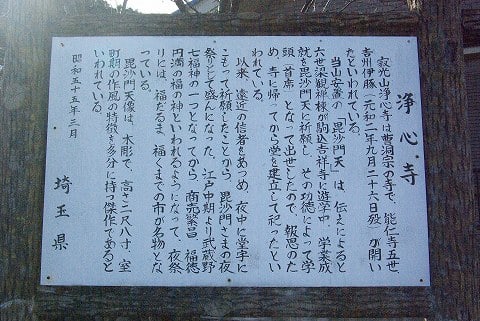 浄心寺
寂光山浄心寺は曹洞宗の寺で、能仁寺五世、
杏州伊豚（元和二年九月二十六日歿）が開い
たといわれている。
当山安置の「毘沙門天」は、伝えによると
六世梁観神棟が駒込吉祥寺に遊学中、学業成
就を毘沙門天に祈願し、その功徳によって学
頭（首席）となって出世したので、報恩のた
め、寺に帰ってから堂を建立して祀ったとい
われている。
以来、遠近の信者をあつめ、夜中に堂宇に
こもって祈願したことから、毘沙門さまの夜
祭りとして盛んになった。江戸中期より武蔵野
七福神の一つとなってから、商売繁昌、福徳
円満の福の神といわれるようになって、夜祭
りには、福だるま、福くまでの市が名物とな
っている。
毘沙門天像は、木彫で、高さ二尺八寸、室
町期の作風の特徴を多分に持つ傑作であると
いわれている。
昭和五十五年三月
埼玉県